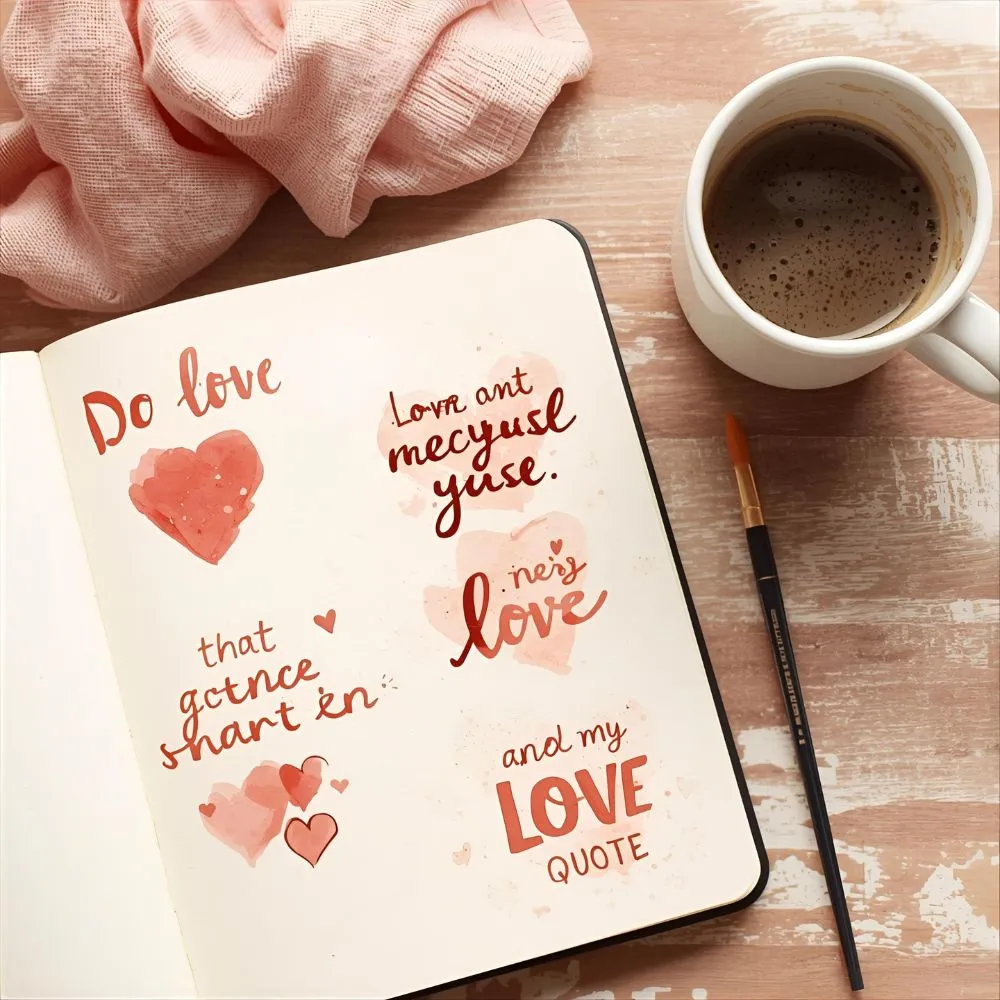 Do love
Love ant
mecyusl
yuse.
neig
love
that
gctnce
snart en
and my
LOVE
QUOTE